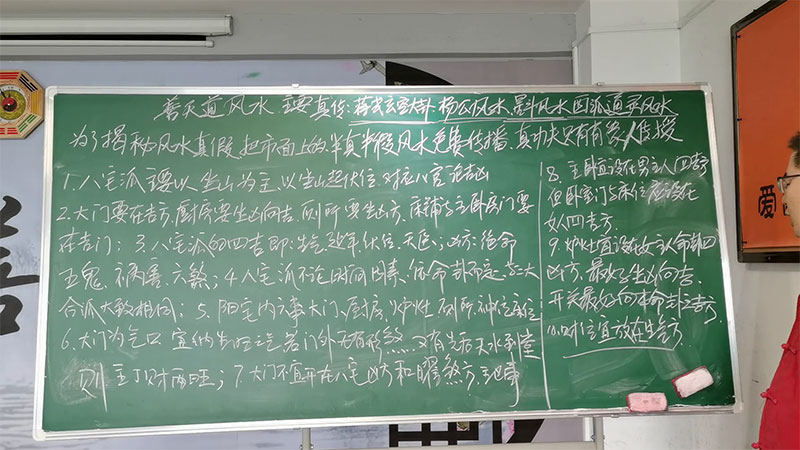 善天道风水 主要真传:蒋氏玄空大卦 杨公风水 星斗风水 回派通灵风水
为了揭秘风水真假 把市面上的半真半假风水免费传播,真功夫只有有缘人传授
1.八宅派主要以坐山为主,以坐山起伏位,对应八宫定吉凶
2.大门要在吉方,厨房要坐凶向吉,厕所要坐凶方,床铺与主卧房门要
在吉门; 3.八宅派的四吉即:生气.延年.伏位.天医;凶方:绝命
五鬼.祸害.六煞; 4.八宅派不论时间因素,依命卦而定,与
合派大致相同; 5.阳宅内六事大门、厨房、炉灶、厕所、神位、床位
6.大门为气口 宜纳生旺之气 若门外无有形煞 又有先后天水到堂
则主丁财两旺; 7.大门不宜开在八宅凶方和曜煞方
8.主卧宜设在男主人四吉方
但卧室门与床位应设在
女人四吉方.
9.炉灶宜设在女主人命卦四
凶方,最好坐凶向吉,
开关最好向本命卦之吉方.
10.财位宜放在生气方.
善
爱